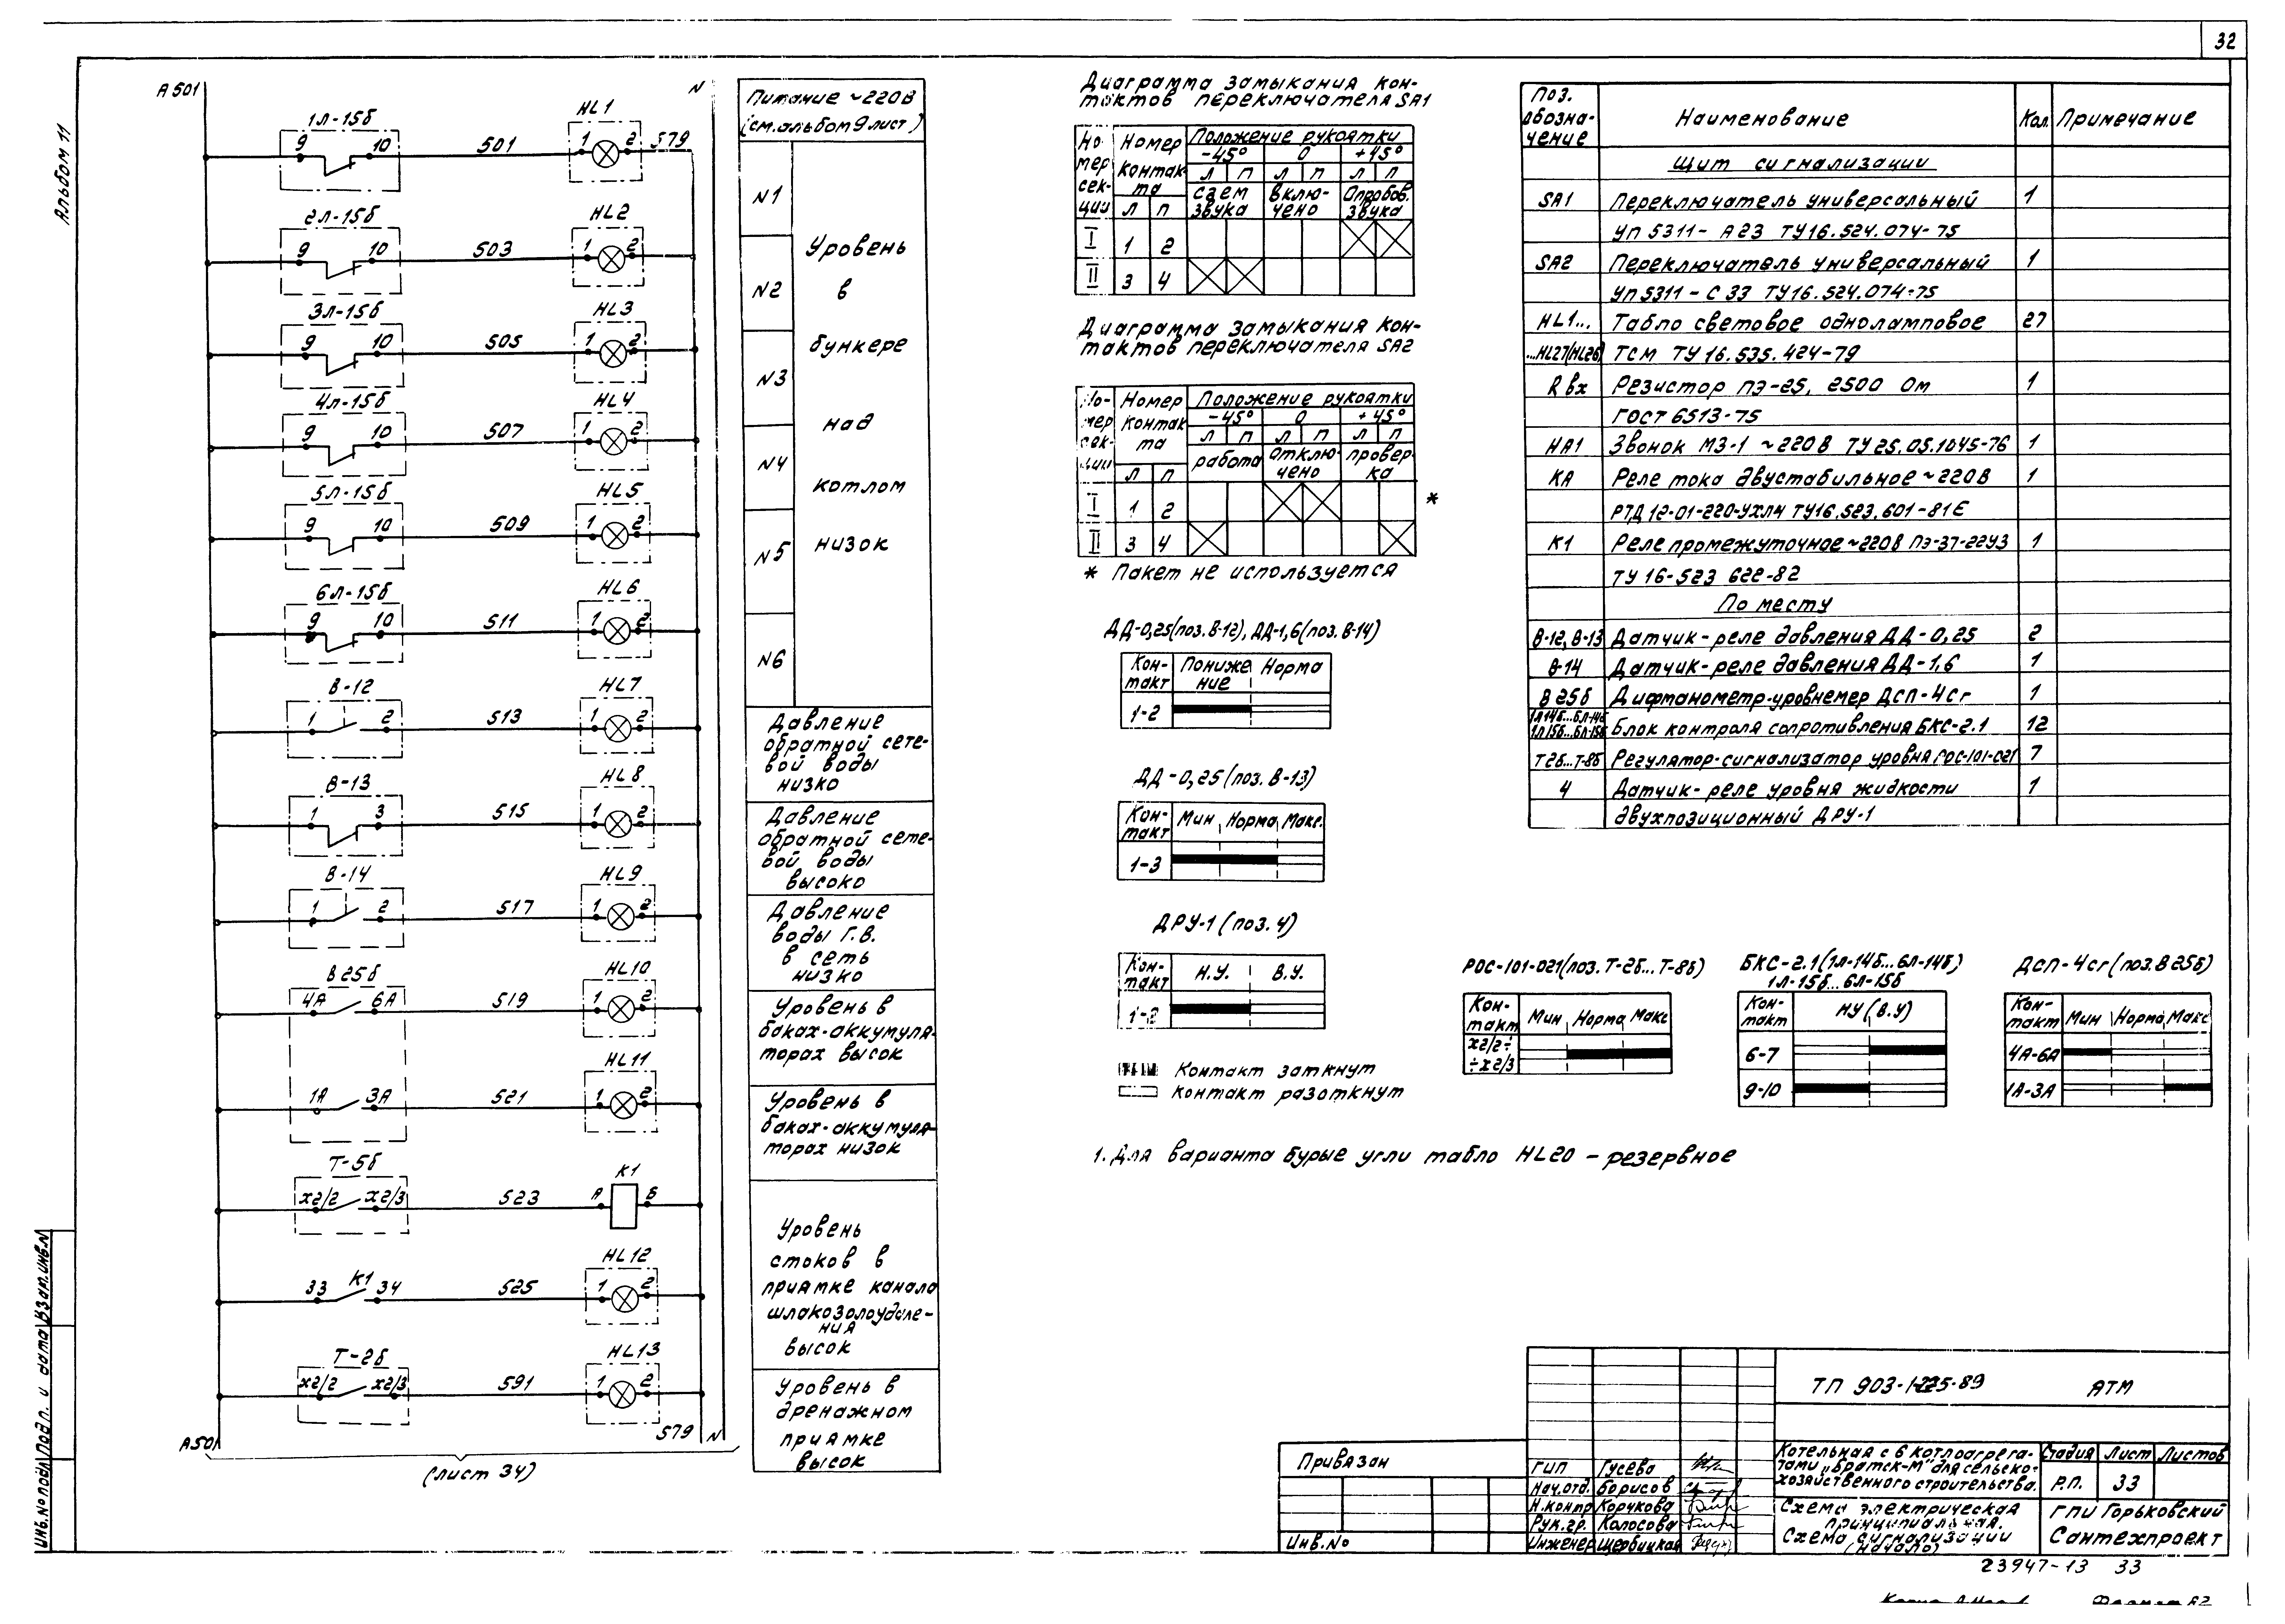 32
Альбом 11
А501
N
1л-15б
9 10
501
HL1
1 2
579
2л-15б
9 10
503
HL2
1 2
3л-15б
9 10
505
HL3
1 2
4л-15б
9 10
507
HL4
1 2
5л-15б
9 10
509
HL5
1 2
6л-15б
9 10
511
HL6
1 2
В-12
1 2
513
HL7
1 2
В-13
1 3
515
HL8
1 2
В-14
1 2
517
HL9
1 2
В25б
4А 6А
519
HL10
1 2
1А 3А
521
HL11
1 2
Т-5б
х2/2 х2/3
523
К1
А Б
33 К1 34
525
HL12
1 2
Т-2б
х2/2 х2/3
591
HL13
1 2
А501
579 N
(лист 34)
Питание ~220В
(см.альбом 9 лист )
N1
N2
N3
N4
N5
N6
Уровень
в
бункере
над
котлом
низок
Давление
обратной сете-
вой воды
низко
Давление
обратной сете-
вой воды
высоко
Давление
воды Г.В.
в сеть
низко
Уровень в
баках-аккумуля-
торах высок
Уровень в
баках-аккумуля-
торах низок
Уровень
стоков в
приямке канала
шлакозолоудале-
ния
высок
Уровень в
дренажном
приямке
высок
Диаграмма замыкания кон-
тактов переключателя SA1
Но-
мер
сек-
ции
Номер
контак-
та
Л П
Положение рукоятки
-45° 0 +45°
Л П Л П Л П
Съем
звука
Вклю-
чено
Опробов.
звука
I 1 2
II 3 4
Диаграмма замыкания кон-
тактов переключателя SA2
Но-
мер
сек-
ции
Номер
контак-
та
Л П
Положение рукоятки
-45° 0 +45°
Л П Л П Л П
работа
отклю-
чено
провер-
ка
I 1 2 *
II 3 4
* Пакет не используется
ДД-0,25(поз.В-12), ДД-1,6(поз.В-14)
Кон-
такт
Пониже
ние
Норма
1-2
ДД-0,25 (поз. В-13)
Кон-
такт
Мин Норма Макс.
1-3
ДРУ-1 (поз. 4)
Кон-
такт
Н.У. В.У.
1-2
Контакт заткнут
Контакт разоткнут
РОС-101-021(поз. Т-2б...Т-8б)
Кон-
такт
Мин Норма Макс
х2/2÷
÷х2/3
БКС-2.1(1л-14б...6л-14б)
1л-15б...6л-15б
Кон-
такт
НУ (В.У)
6-7
9-10
ДСП-4сг(поз.В25б)
Кон-
такт
Мин Норма Макс
4А-6А
1А-3А
1. Для варианта бурые угли табло HL20 - резервное
Поз.
обозна-
чение
Наименование
Кол.
Примечание
Щит сигнализации
SA1 Переключатель универсальный 1
УП 5311- А23 ТУ16.524.074-75
SA2 Переключатель универсальный 1
УП5311-С 33 ТУ16.524.074-75
HL1... Табло световое одноламповое 27
...HL27(HL26) ТСМ ТУ 16.535.424-79
Rвх Резистор ПЭ-25, 2500 Ом 1
ГОСТ 6513-75
НА1 Звонок МЗ-1 ~220В ТУ25.05.1045-76 1
КА Реле тока двустабильное ~220В 1
РТД12-01-220-УХЛ4 ТУ16.523.601-81Е
К1 Реле промежуточное~220В ПЭ-37-22У3 1
ТУ 16-523 622-82
По месту
В-12,В-13 Датчик-реле давления ДД-0,25 2
В-14 Датчик-реле давления ДД-1,6 1
В25б Дифманометр-уровнемер ДСП-4сг 1
1л14б...6л-14б
1л15б...6л-15б Блок контроля сопротивления БКС-2.1 12
Т2б...Т-8б Регулятор-сигнализатор уровня РОС-101-021 7
4 Датчик-реле уровня жидкости 1
двухпозиционный ДРУ-1
Привязан
Инв.No
ГИП Гусева
Нач.отд. Борисов
Н.контр Корчкова
Рук.гр. Колосова
Инженер Щервицкая
ТП 903-1-225-89 АТМ
Котельная с 6 котлоагрега-
тами „Братск-М" для сельско-
хозяйственного строительства.
Стадия Лист Листов
Р.П. 33
Схема электрическая
принципиальная.
Схема сигнализации
(начало)
ГПИ Горьковский
Сантехпроект
23947-13 33
Формат А2
Инв.No подл. Подп. и дата Взам.инв.N